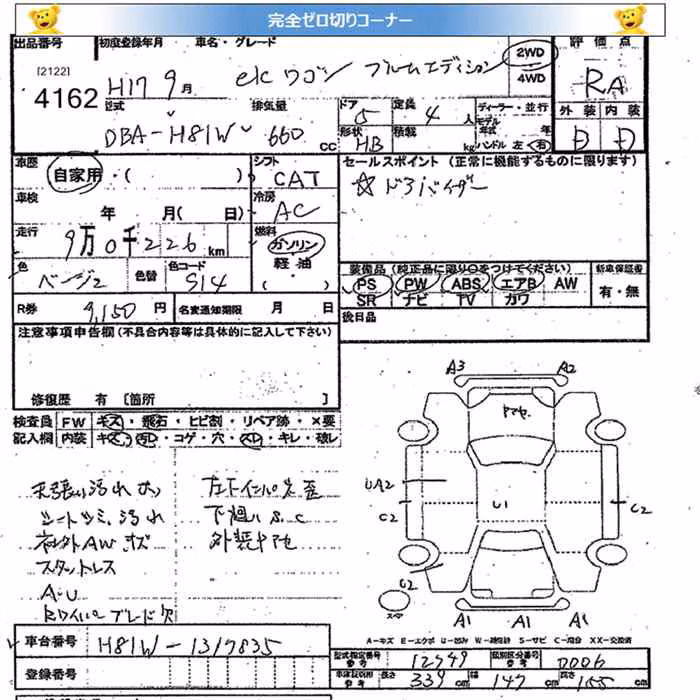 完全ゼロ切りコーナー
出品番号 初度登録年月 車名・グレード 評価点
[2122]
4162
H17 9月 ekワゴン ブルームエディション 2WD
4WD
RA
型式 排気量 ドア 定員 ディーラー・並行 外装 内装
DBA-H81W 660 cc 5 4人 モデル 年式 年
形状 HB 積載 kg ハンドル 左 右 D D
車歴 シフト セールスポイント (正常に機能するものに限ります)
自家用・( ) CAT ☆ドアバイザー
車検 冷房
年 月( 日) AC
走行 燃料
9万0千226km ガソリン
軽油
色 色替 色コード ・( )
ベージュ S14
装備品 (純正品に限り○をつけてください) 新車保証書
PS PW ABS エアB AW 有・無
SR ナビ TV カワ
R券 9,150円 名変通知期限 月 日 後日品
注意事項申告欄(不具合内容等は具体的に記入して下さい)
修復歴 有 [箇所 ]
検査員 FW キズ・飛石・ヒビ割・リペア跡・×要
記入欄 内装 キズ・汚レ・コゲ・穴・スレ・キレ・破レ
天張り汚れ大 左下インパネ歪
シートシミ、汚れ 下廻りS.C
社外AWキズ
スタットレス
A-U
Rワイパーブレード欠
A3 A2
UA2
C2
U1
C2
C2
A1 A1 A1
A-キズ E-エクボ U-凹み W-補修跡 S-サビ C-腐食 XX-交換済
車台番号 H81W-1317835
型式指定番号 参考 12749 類別区分番号 参考 0006
登録番号
長さ 339cm 幅 147cm 高さ 155cm